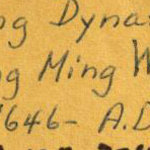 ng Dyna
ng Ming W
1646- A.D